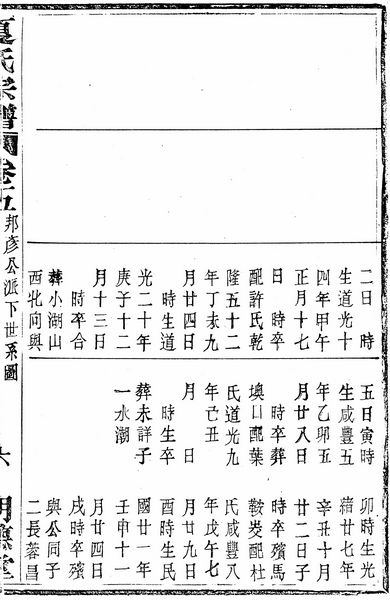 二日 時
生道光十
四年甲午
正月十七
日 時卒
配許氏乾
隆五十二
年丁未九
月廿四日
時生道
光二十年
庚子十二
月十三日
時卒合
葬小湖山
西北向與
五日寅時
生咸豐五
年乙卯五
月廿八日
時卒葬
塽口配葉
氏道光九
年己丑
月 日
時生卒
葬未詳子
一水潮
卯時生光
緒廿七年
辛丑十月
廿二日子
時卒殯馬
鞍岌配杜
氏咸豐八
年戊午七
月廿九日
酉時生民
國廿一年
壬申十一
月廿四日
戌時卒殯
與公同子
二長蓉昌
氏宗譜
邦彥公派下世系圖
六